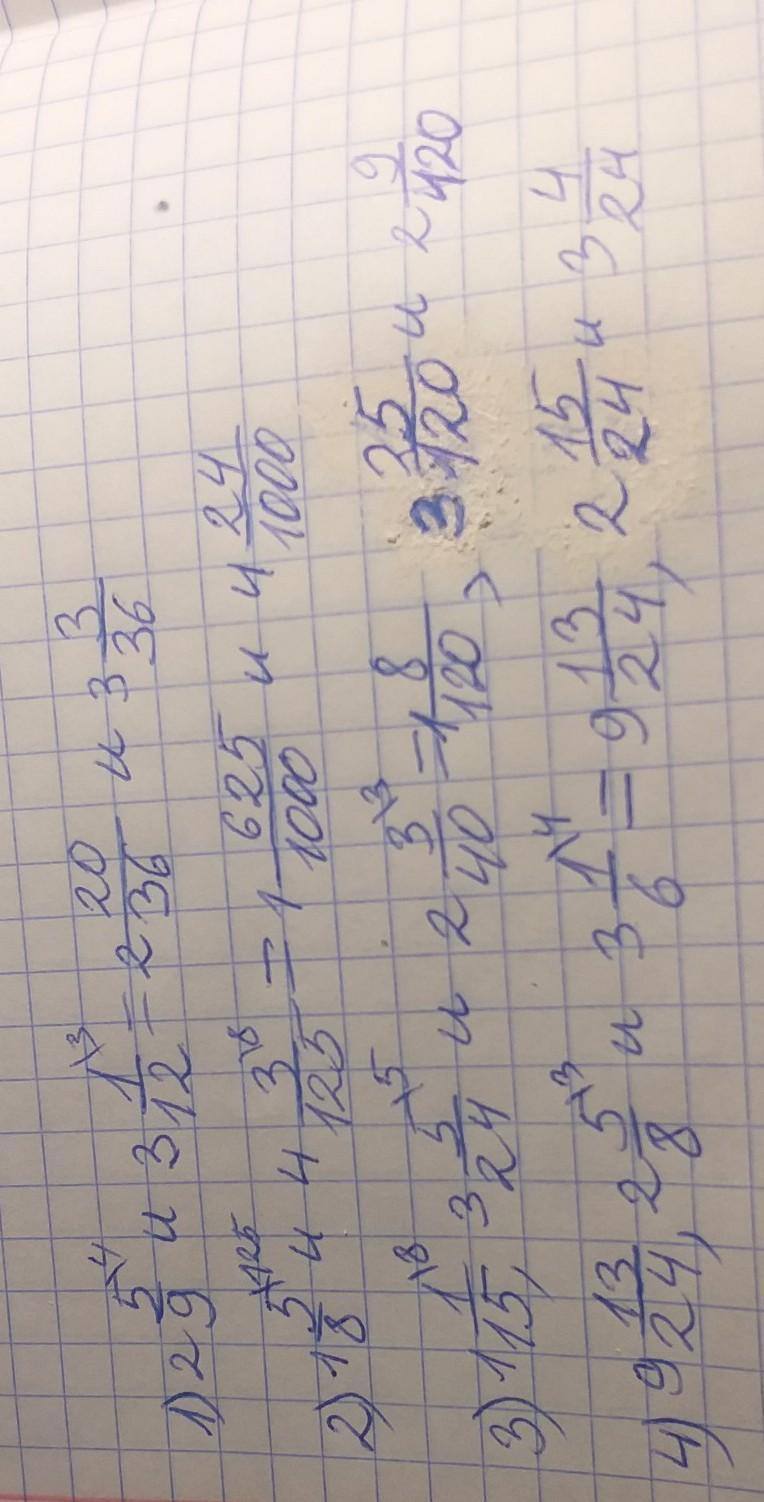 1) 2 5/9 \4 и 3 1/12 \3 = 2 20/36 и 3 3/36
2) 1 5/8 \125 и 4 3/125 \8 = 1 625/1000 и 4 24/1000
3) 1 1/15 \8, 3 5/24 \5 и 2 3/40 \3 = 1 8/120, 3 25/120 и 2 9/120
4) 9 13/24, 2 5/8 \3 и 3 1/6 \4 = 9 13/24, 2 15/24 и 3 4/24